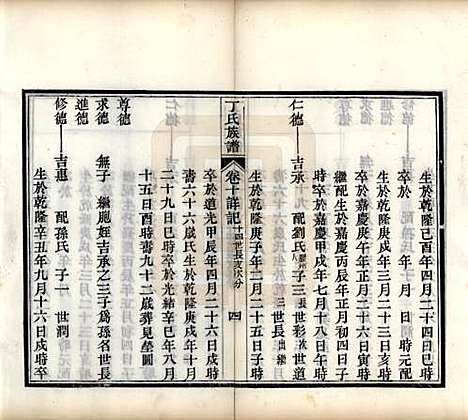 生於乾隆己酉年四月二十四日巳時
卒於　年　月　日　時元配
生於乾隆庚戌年三月二十三日亥時
卒於嘉慶庚午年正月二十六日寅時
繼配生於嘉慶丙辰年正月初四日子
時卒於嘉慶甲戌年七月十八日午時
仁德——吉承　配劉氏　子三　世彩　世道　世長出繼
生於乾隆庚子年二月二十五日子時
丁氏族譜
卷十詳記
四
卒於道光甲辰年四月二十六日戌時
壽六十六歲氏生於乾隆庚戌年十月
二十九日巳時卒於光緒辛巳年八月
十五日酉時壽九十二歲葬見塋圖
尊德
求德　無子　繼胞姪吉承之三子爲孫名世長
進德
修德——吉惠　配孫氏　子一　世潤
生於乾隆辛丑年九月十六日戌時卒